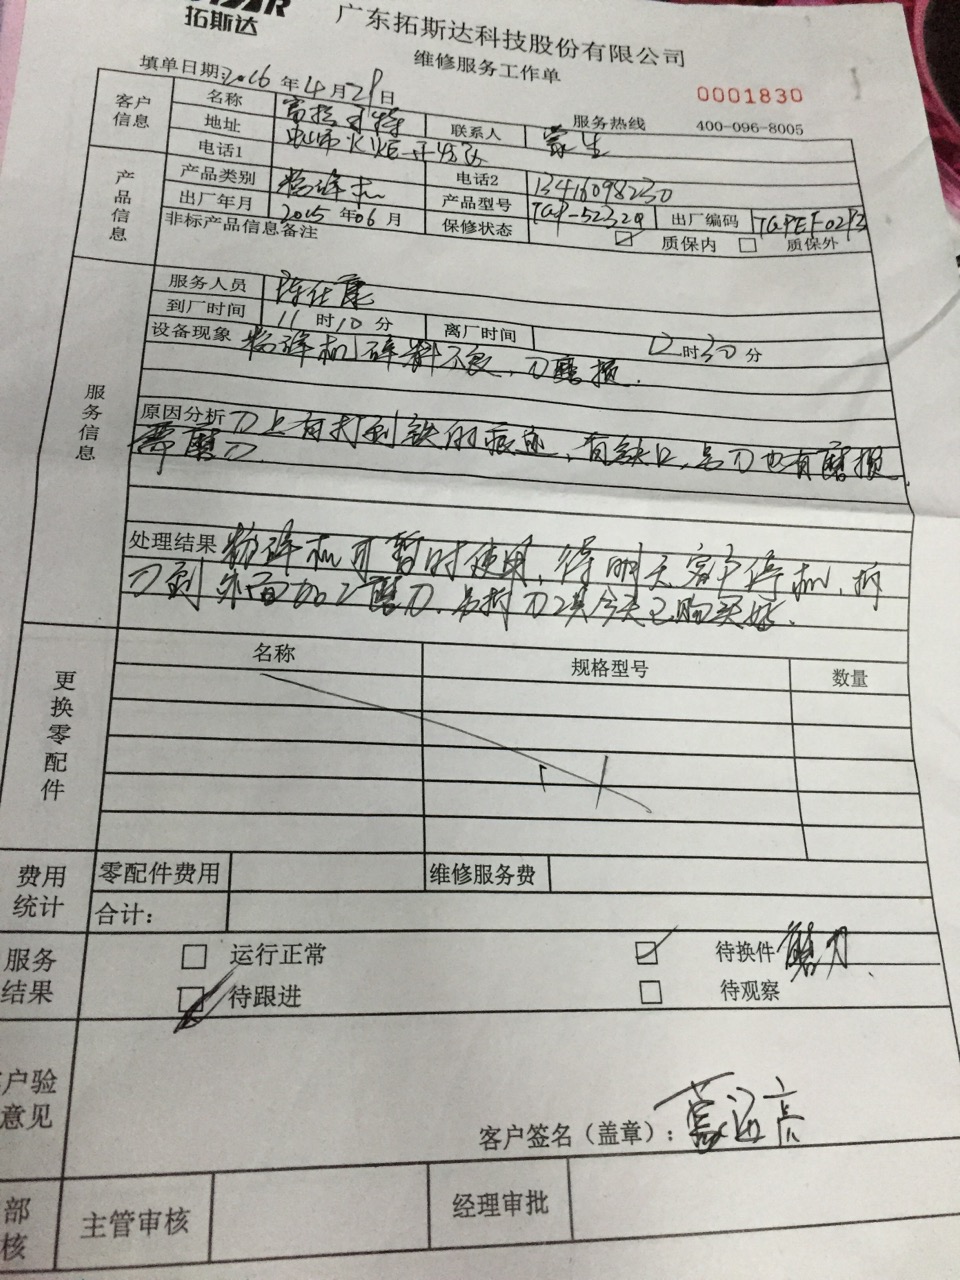 拓斯达
广东拓斯达科技股份有限公司
维修服务工作单
填单日期:2016年4月29日
0001830
服务热线 400-096-8005
客户信息
名称
联系人 蒙生
地址
电话1
电话2 13416098230
产品信息
产品类别 粉碎机
产品型号 TGP-5232Q
出厂编码
出厂年月 2015年06月
保修状态 ☑ 质保内 □ 质保外
非标产品信息备注
服务信息
服务人员 陈仕康
到厂时间 11时10分
离厂时间 12时30分
设备现象 粉碎机碎料不良,刀磨损.
原因分析 刀上有打到铁的痕迹,有缺口,另刀也有磨损,
需磨刀.
处理结果 粉碎机可暂时使用,待明天客户停机,拆
刀到外面加工磨刀.另拆刀工具今天已购买好.
更换零配件
名称 规格型号 数量
费用统计
零配件费用 维修服务费
合计:
服务结果
□ 运行正常 ☑ 待换件 磨刀.
☑ 待跟进 □ 待观察
户验
意见
客户签名(盖章):蒙远亮
部
核
主管审核 经理审批